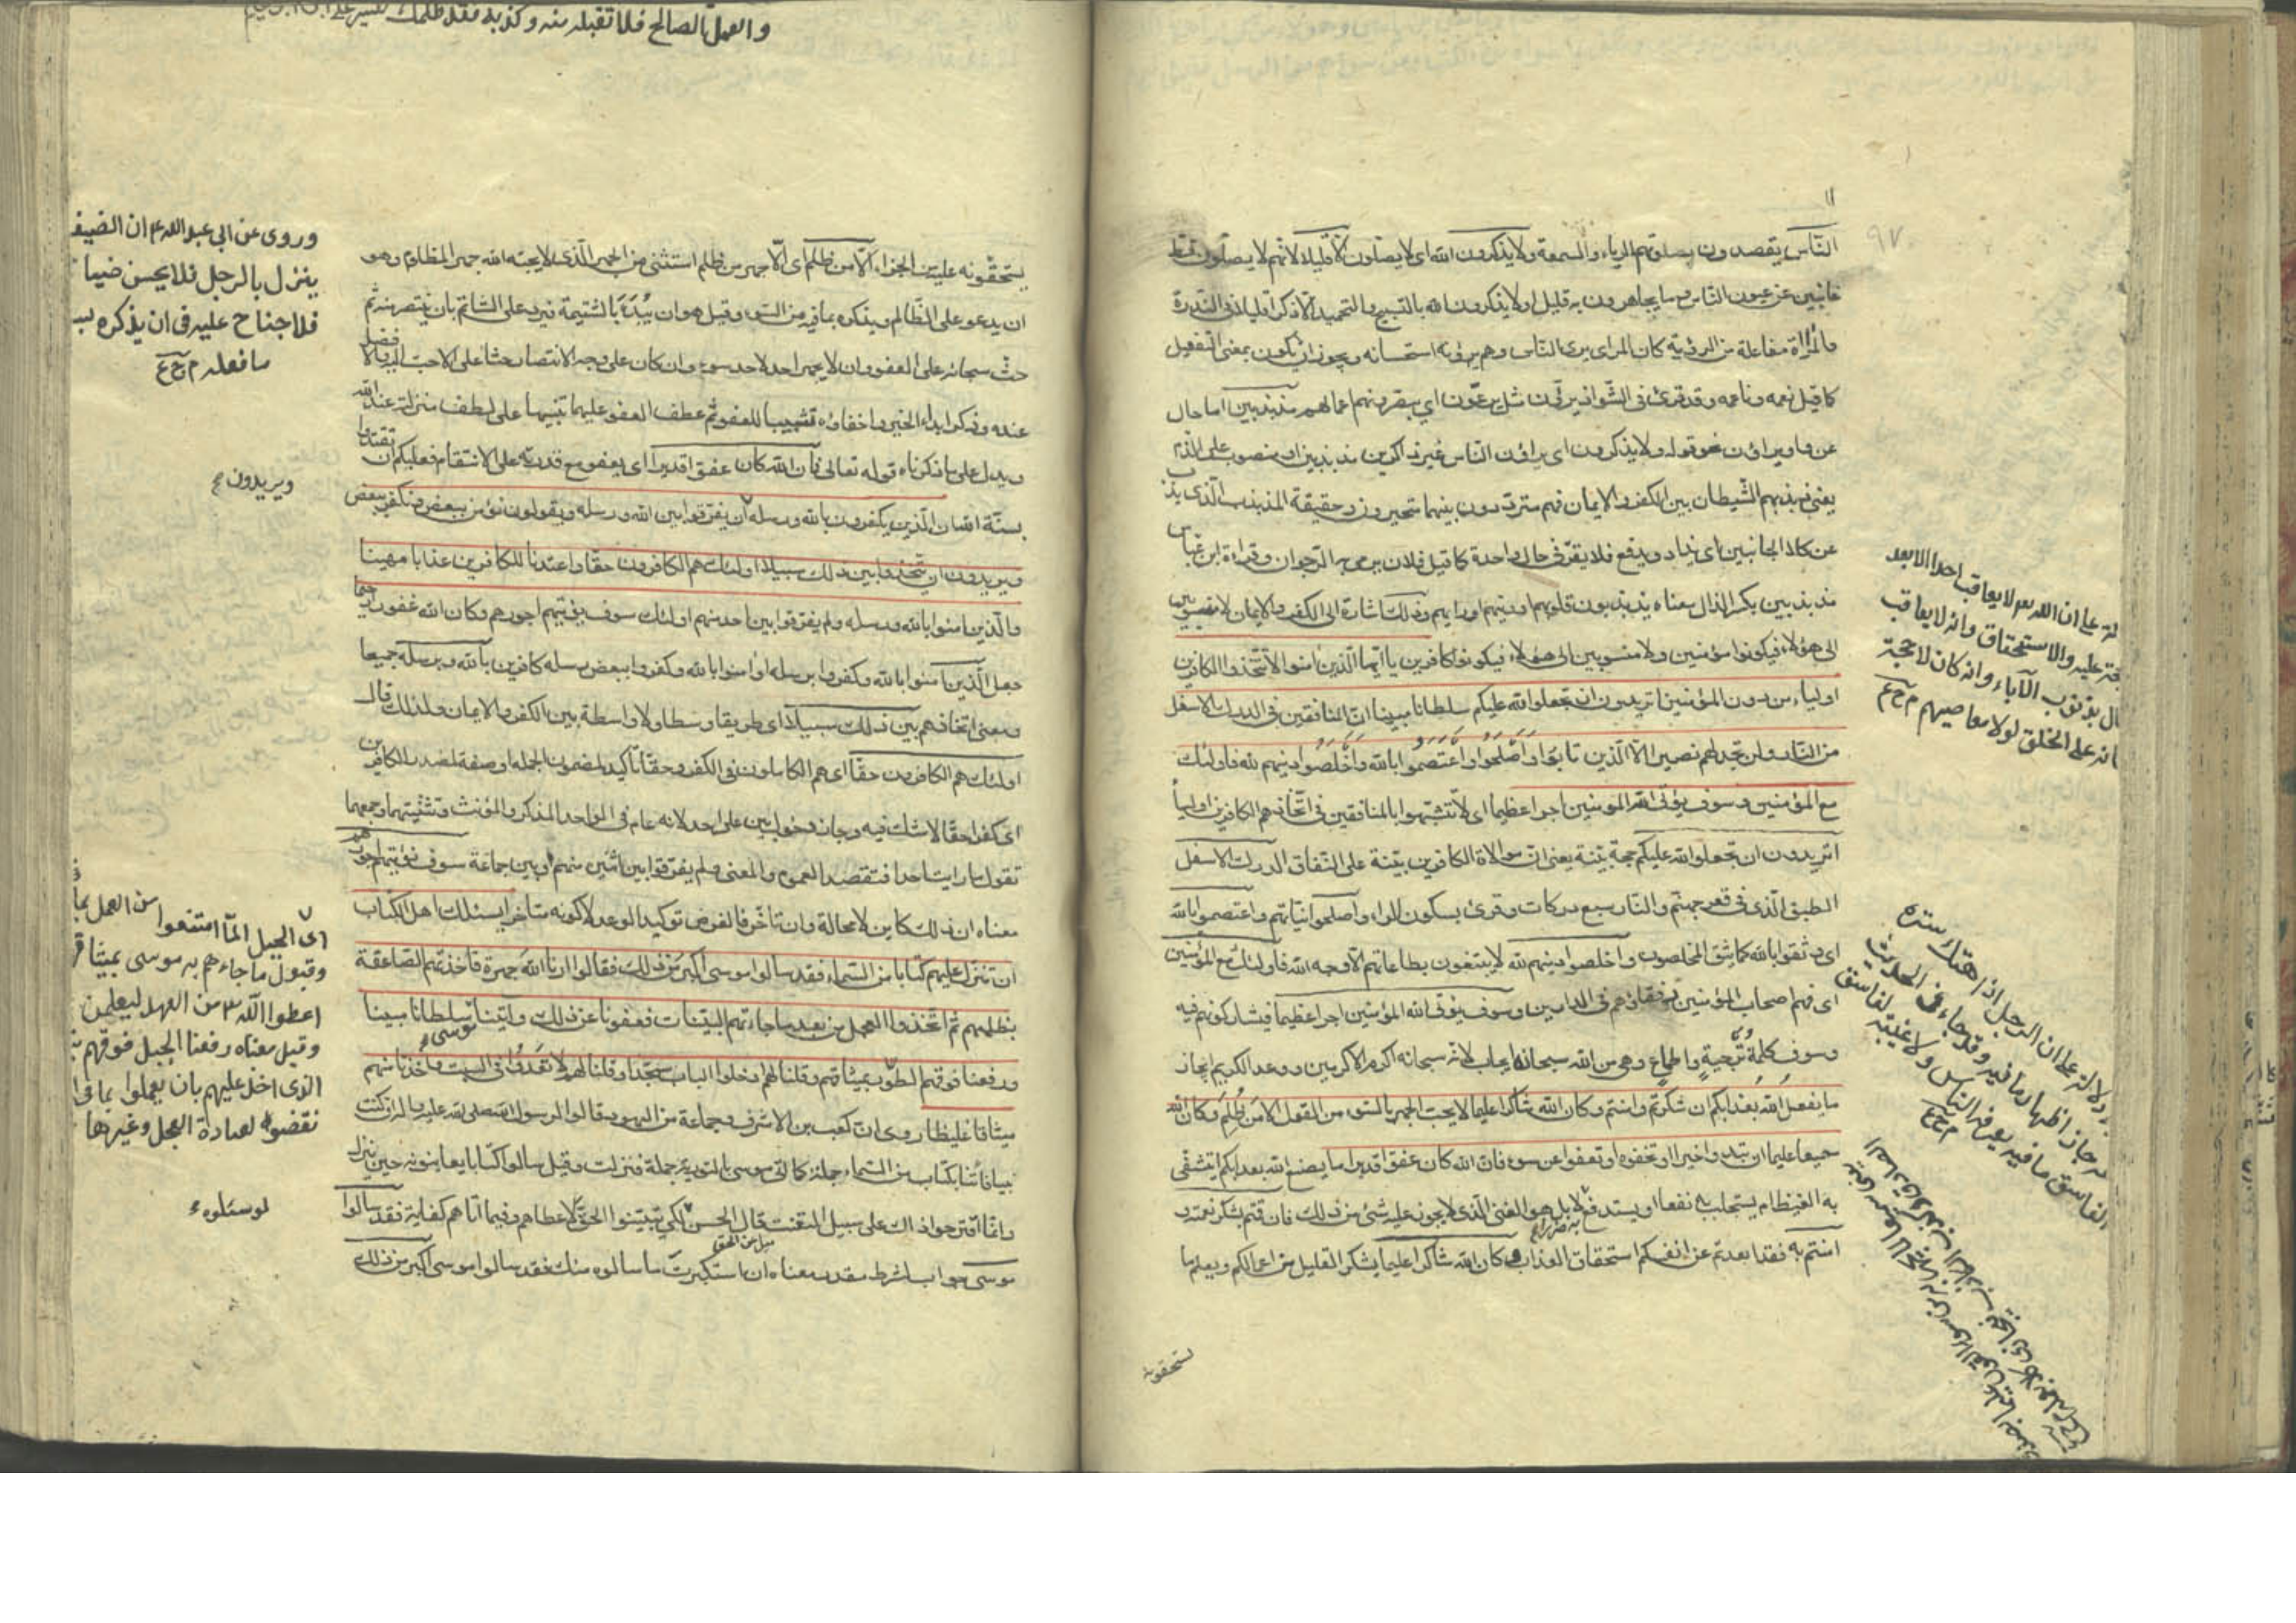 ٩٧
الناس يقصدون بصلوتهم الرياء والسمعة ولا يذكرون الله اى لا يصلون الا قليلا لانهم لا يصلون قط
غائبين عن عيون الناس وما يجاهرون به قليل او لا يذكرون الله بالتسبيح والتحميد الا ذكرا قليلا فى الندرة
والمراأة مفاعلة من الرؤية كان المرائى يرى الناس وهم يرونه استحسانه ويجوز ان يكون بمعنى التفعيل
كما قيل نعمه وناعمه وقد قرئ فى الشواذ يرئون مثل يرعون اى يبصرونهم اعمالهم مذبذبين اما حال
عن واو يراؤن نحو قوله ولا يذكرون اى يراؤن الناس غير ذاكرين مذبذبين او منصوب على الذم
يعنى ذبذبهم الشيطان بين الكفر والايمان فهم مترددون بينهما متحيرون وحقيقة المذبذب الذى يذب
عن كلا الجانبين اى يذاد ويدفع فلا يقر فى حال واحدة كما قيل فلان يرمى به الرجوان وقراءة ابن عباس
مذبذبين بكسر الذال معناه يذبذبون قلوبهم او دينهم او رايهم وذلك اشارة الى الكفر والايمان لا منسوبين
الى هؤلاء فيكونوا مؤمنين ولا منسوبين الى هؤلاء فيكونوا كافرين يا ايها الذين امنوا لا تتخذوا الكافرين
اولياء من دون المؤمنين اتريدون ان تجعلوا لله عليكم سلطانا مبينا ان المنافقين فى الدرك الاسفل
من النار ولن تجد لهم نصيرا الا الذين تابوا واصلحوا واعتصموا بالله واخلصوا دينهم لله فاولئك
مع المؤمنين وسوف يؤتى الله المؤمنين اجرا عظيما اى لا تتشبهوا بالمنافقين فى اتخاذهم الكافرين اولياء
اتريدون ان تجعلوا لله عليكم حجة بينة يعنى ان موالاة الكافرين بينة على النفاق الدرك الاسفل
الطبق الذى فى قعر جهنم والنار سبع دركات وقرئ بسكون الراء واصلحوا نياتهم واعتصموا بالله
اى وثقوا بالله كما يثق المخلصون واخلصوا دينهم لله لا يبتغون بطاعاتهم الا وجه الله فاولئك مع المؤمنين
اى فهم اصحاب المؤمنين ورفقاؤهم فى الدارين وسوف يؤتى الله المؤمنين اجرا عظيما فيشاركونهم فيه
وسوف كلمة ترجية واطماع وهى من الله سبحانه ايجاب لانه سبحانه اكرم الاكرمين ووعد الكريم انجاز
ما يفعل الله بعذابكم ان شكرتم وامنتم وكان الله شاكرا عليما لا يحب الجهر بالسوء من القول الا من ظلم وكان الله
سميعا عليما ان تبدوا خيرا او تخفوه او تعفوا عن سوء فان الله كان عفوا قديرا ما يصنع الله بعذابكم ايتشفى
به الغيظ ام يستجلب به نفعا او يستدفع به ضررا لا بل هو الغنى الذى لا يجوز عليه شئ من ذلك فان قمتم بشكر نعمته و
امنتم به فقد ابعدتم عن انفسكم استحقاق العذاب وكان الله شاكرا عليما يشكر القليل من اعمالكم ويعلم ما
يستحقونه
لة على ان الله تع لا يعاقب احدا الا بعد
عليه والاستحقاق وانه لا يعاقب
بذنوب الاباء وانه كان لا حجة
على الخلق لولا معاصيهم م ح ع
دلالة على ان الرجل اذا هتك ستره
جاز اظهار ما فيه وقد جاء فى الحديث
الفاسق ما فيه يعرفه الناس ولا غيبة لفاسق
م ح ع
والعمل الصالح فلا تقبله منه وكذبه فقد ظلمك
يستحقونه عليه من الجزاء الا من ظلم اى الا جهر من ظلم استثنى من الجهر الذى لا يحبه الله جهر المظلوم وهو
ان يدعو على الظالم ويذكره بما فيه من السوء وقيل هو ان يبدأ بالشتيمة فيرد على الشاتم بان ينتصر منه ثم
حث سبحانه على العفو وان لا يجهر احد لاحد بسوء وان كان على وجه الانتصار حثا على الاحب اليه والافضل
عنده وذكر ابداء الخير واخفاؤه تشبيبا للعفو ثم عطف العفو عليهما تنبيها على لطف منزلته عند الله
ويدل على ما ذكرناه قوله تعالى فان الله كان عفوا قديرا اى يعفو مع قدرته على الانتقام فعليكم ان تقتدوا
بسنة الله ان الذين يكفرون بالله ورسله ان يفرقوا بين الله ورسله ويقولون نؤمن ببعض ونكفر ببعض
ويريدون ان يتخذوا بين ذلك سبيلا اولئك هم الكافرون حقا واعتدنا للكافرين عذابا مهينا
والذين امنوا بالله ورسله ولم يفرقوا بين احد منهم اولئك سوف يؤتيهم اجورهم وكان الله غفورا رحيما
جعل الذين امنوا بالله وكفروا برسله او امنوا بالله وكفروا ببعض رسله كافرين بالله وبرسله جميعا
ومعنى اتخاذهم بين ذلك سبيلا اى طريقا وسطا ولا واسطة بين الكفر والايمان ولذلك قال
اولئك هم الكافرون حقا اى هم الكاملون فى الكفر وحقا تاكيد لمضمون الجملة او صفة لمصدر الكافرين
اى كفرا حقا لا شك فيه وجاز دخول بين على احد لانه عام فى الواحد المذكر والمؤنث وتثنيتهما وجمعهما
تقول ما رايت احدا فتقصد العموم والمعنى ولم يفرقوا بين اثنين منهم او بين جماعة سوف نؤتيهم اجورهم
معناه ان ذلك كاين لا محالة وان تاخر فالغرض توكيد الوعد لا كونه متاخرا يسئلك اهل الكتاب
ان تنزل عليهم كتابا من السماء فقد سالوا موسى اكبر من ذلك فقالوا ارنا الله جهرة فاخذتهم الصاعقة
بظلمهم ثم اتخذوا العجل من بعد ما جاءتهم البينات فعفونا عن ذلك واتينا موسى سلطانا مبينا
ورفعنا فوقهم الطور بميثاقهم وقلنا لهم ادخلوا الباب سجدا وقلنا لهم لا تعدوا فى السبت واخذنا منهم
ميثاقا غليظا روى ان كعب بن الاشرف وجماعة من اليهود قالوا لرسول الله صلى الله عليه وآله ان كنت
نبيا فأتنا بكتاب من السماء جملة كما اتى موسى بالتورية جملة فنزلت وقيل سالوا كتابا يعاينونه حين ينزل
وانما اقترحوا ذلك على سبيل التعنت قال الحسن لكى يتبينوا الحق لاعطاهم وفيما اتاهم كفاية فقد سالوا
موسى جواب لشرط مقدر معناه ان استكبرت ما سالوه منك فقد سالوا موسى اكبر من ذلك
وروى عن ابى عبد الله ع ان الضيف
ينزل بالرجل فلا يحسن ضيا
فلا جناح عليه فى ان يذكره بسـ
ما فعله م ح ع
ويريدون ع
اى الجبل لما امتنعوا من العمل بما
وقبول ما جاءهم به موسى بميثا
اعطوا الله من العهد ليعلمن
وقيل معناه رفعنا الجبل فوقهم
الذى اخذ عليهم بان يعملوا بما فى
نقضوه لعبادة العجل وغيرها
لو سئلوه ع